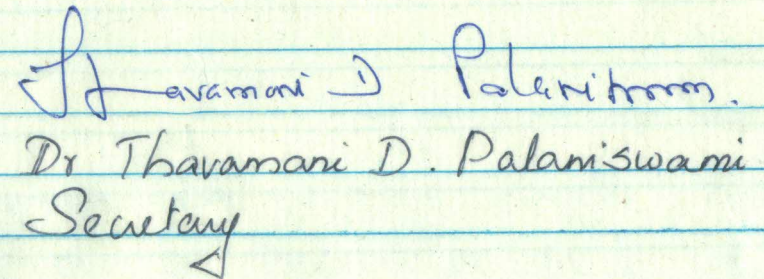 Thavamani D Palaniswami.
Dr Thavamani D. Palaniswami
Secretary